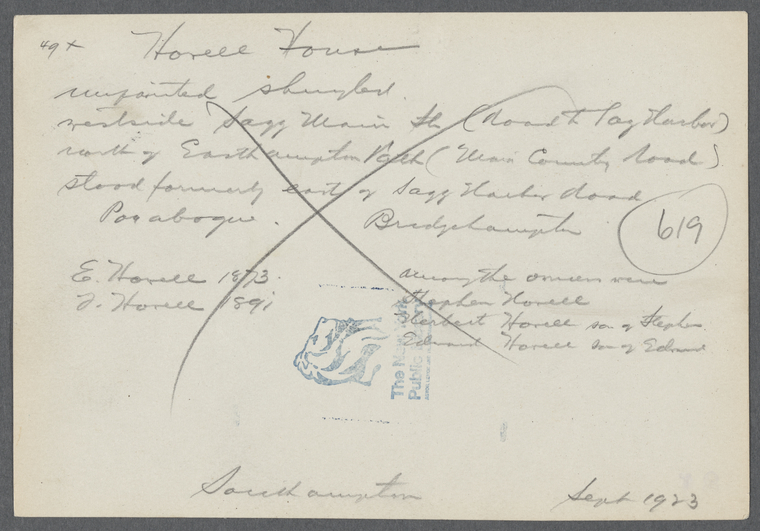 49 x Howell House
unpainted shingled.
westside Sagg Main St (road to Sag Harbor)
north of Easthampton Path (Main Country Road)
stood formerly east of Sagg Harbor Road
Poxabogue. Bridgehampton
619
E. Howell 1873.
J. Howell 1891
among the owners were
Stephen Howell
Herbert Howell son of Stephen.
Edward Howell son of Edward
The New York
Public
Southampton
Sept 1923